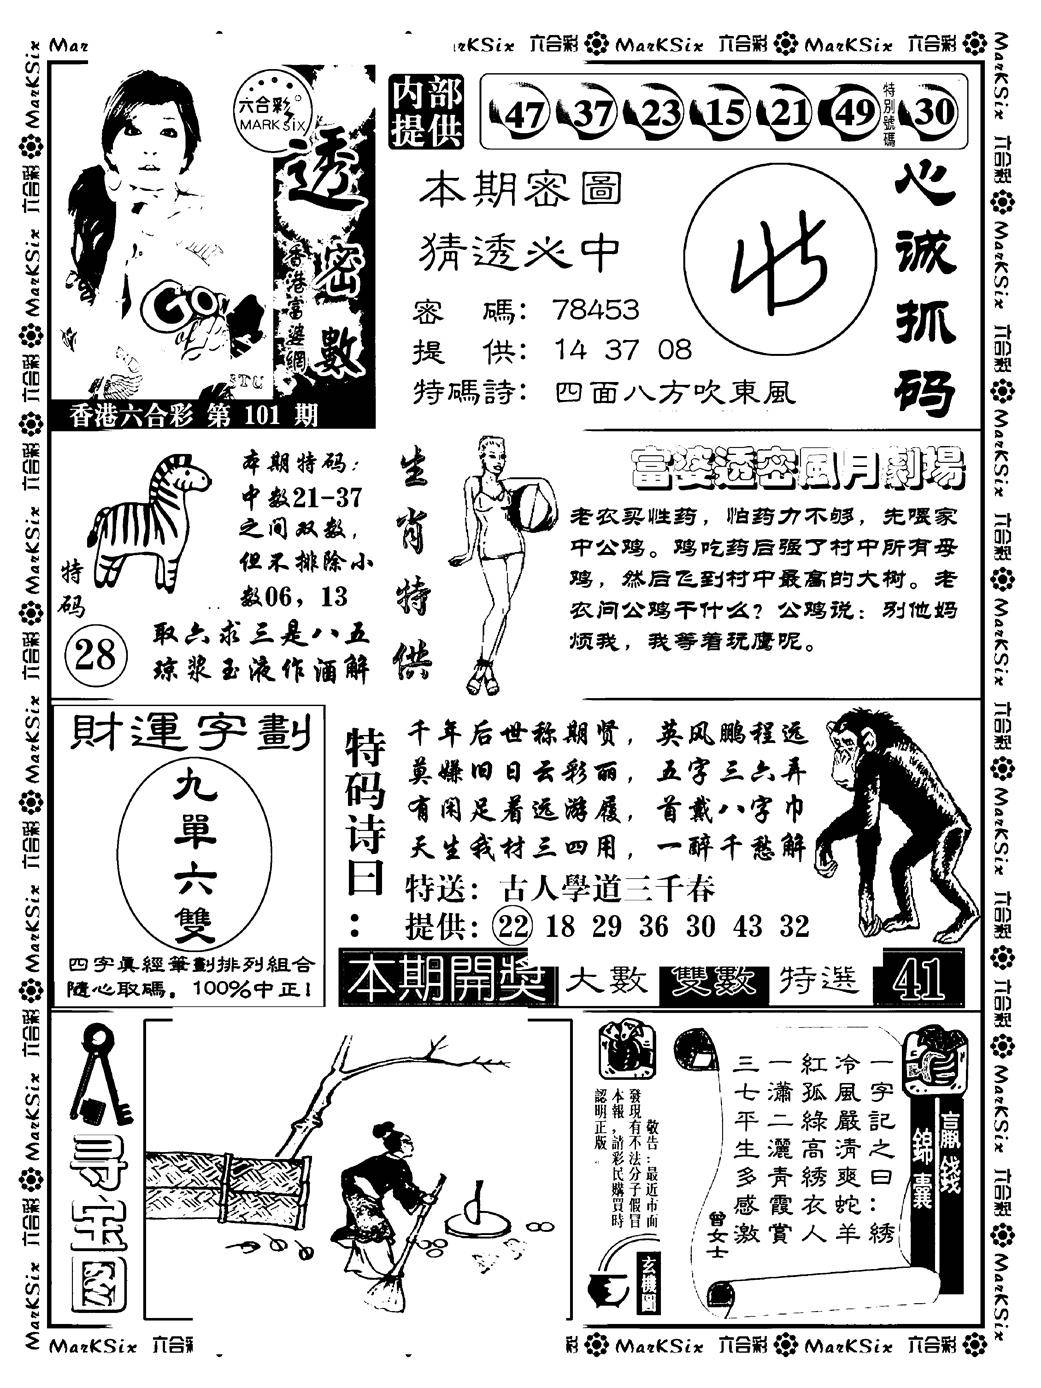 MarKSix 六合彩 MarKSix 六合彩 MarKSix 六合彩
六合彩
MARK SIX
透密數
香港富婆網
香港六合彩 第 101 期
内部
提供
47 37 23 15 21 49 特別號碼 30
本期密圖
猜透必中
密 碼：78453
提 供：14 37 08
特碼詩：四面八方吹東風
心诚抓码
本期特码：
中数21-37
之间双数，
但不排除小
数06，13
特码
28
取六求三是八五
琼浆玉液作酒解
生肖特供
富婆透密風月劇場
老农买性药，怕药力不够，先喂家
中公鸡。鸡吃药后强了村中所有母
鸡，然后飞到村中最高的大树。老
农问公鸡干什么？公鸡说：别他妈
烦我，我等着玩鹰呢。
財運字劃
九單六雙
四字真經筆劃排列組合
隨心取碼，100%中正！
特码诗曰：
千年后世称期贤，英风鹏程远
莫嫌旧日云彩丽，五字三六弄
有闲足着远游履，首戴八字巾
天生我材三四用，一醉千愁解
特送：古人學道三千春
提供：22 18 29 36 30 43 32
本期開獎 大數 雙數 特選 41
寻宝图
敬告：最近市面
發現有不法分子假冒
本報，請彩民購買時
認明正版
玄機圖
贏錢
錦囊
一字記之曰：綉
冷風嚴清爽蛇羊
紅孤綠高綉衣人
一瀟二灑青霞賞
三七平生多感激
曾女士
MarKSix 六合彩 MarKSix 六合彩 MarKSix 六合彩